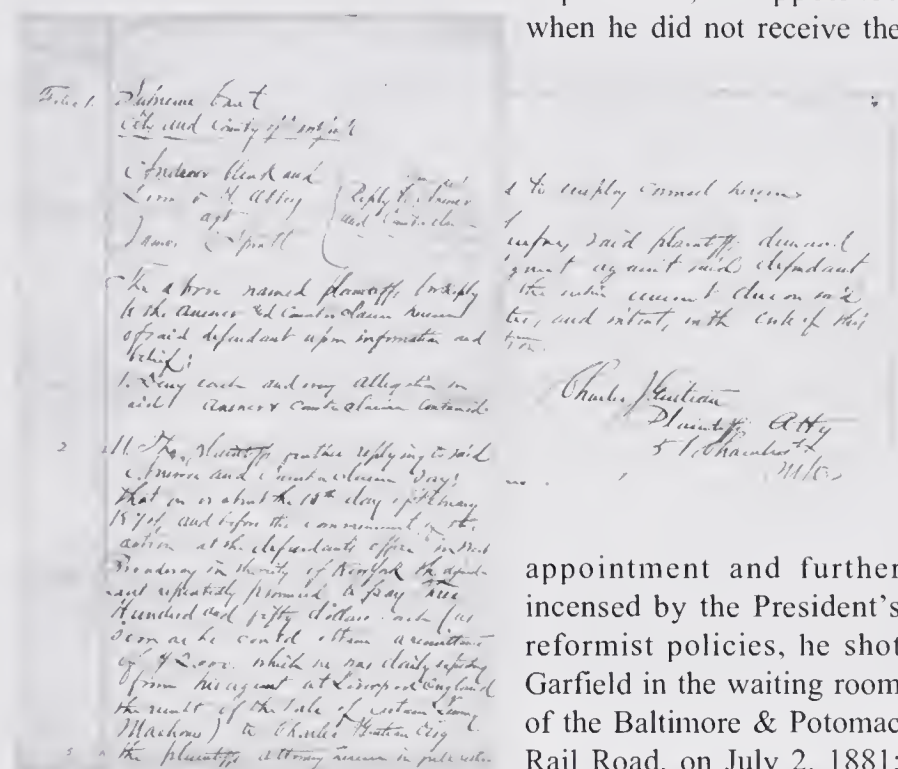 when he did not receive the
Supreme Court
City and County of
Andrew Clerk and
agst
James
Reply to Answer
and Counterclaim
The above named plaintiffs, by reply
to the answer and Counterclaim herein
of said defendant upon information and
belief:
1. Deny each and every allegation in
said answer & Counterclaim Contained.
2 II. The plaintiffs further replying to said
Answer and Counterclaim Say:
that on or about the day of February
and before the commencement of the
action at the defendants office in
Broadway in the city of New York the defend-
ant repeatedly promised to pay Three
Hundred and fifty dollars cash (as
soon as he could obtain a remittance
of $2.000. which he was daily expecting
from his agent at Liverpool England
the result of the Sale of certain
Machines) to Charles Guiteau Esq
the plaintiffs attorney herein in
to employ counsel herein
said plaintiffs demand
against said defendant
the entire amount due on said
and interest, with the Costs of this
Charles J Guiteau
Plaintiffs Atty
Chambers St
appointment and further
incensed by the President's
reformist policies, he shot
Garfield in the waiting room
of the Baltimore & Potomac
Rail Road, on July 2, 1881;